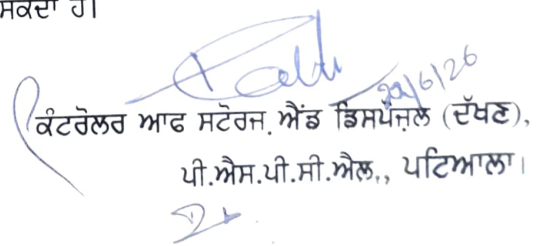 ਸਕਦਾ ਹੈ।
22/6/26
ਕੰਟਰੋਲਰ ਆਫ ਸਟੋਰਜ਼ ਐਂਡ ਡਿਸਪੋਜ਼ਲ (ਦੱਖਣ),
ਪੀ.ਐਸ.ਪੀ.ਸੀ.ਐਲ,, ਪਟਿਆਲਾ।